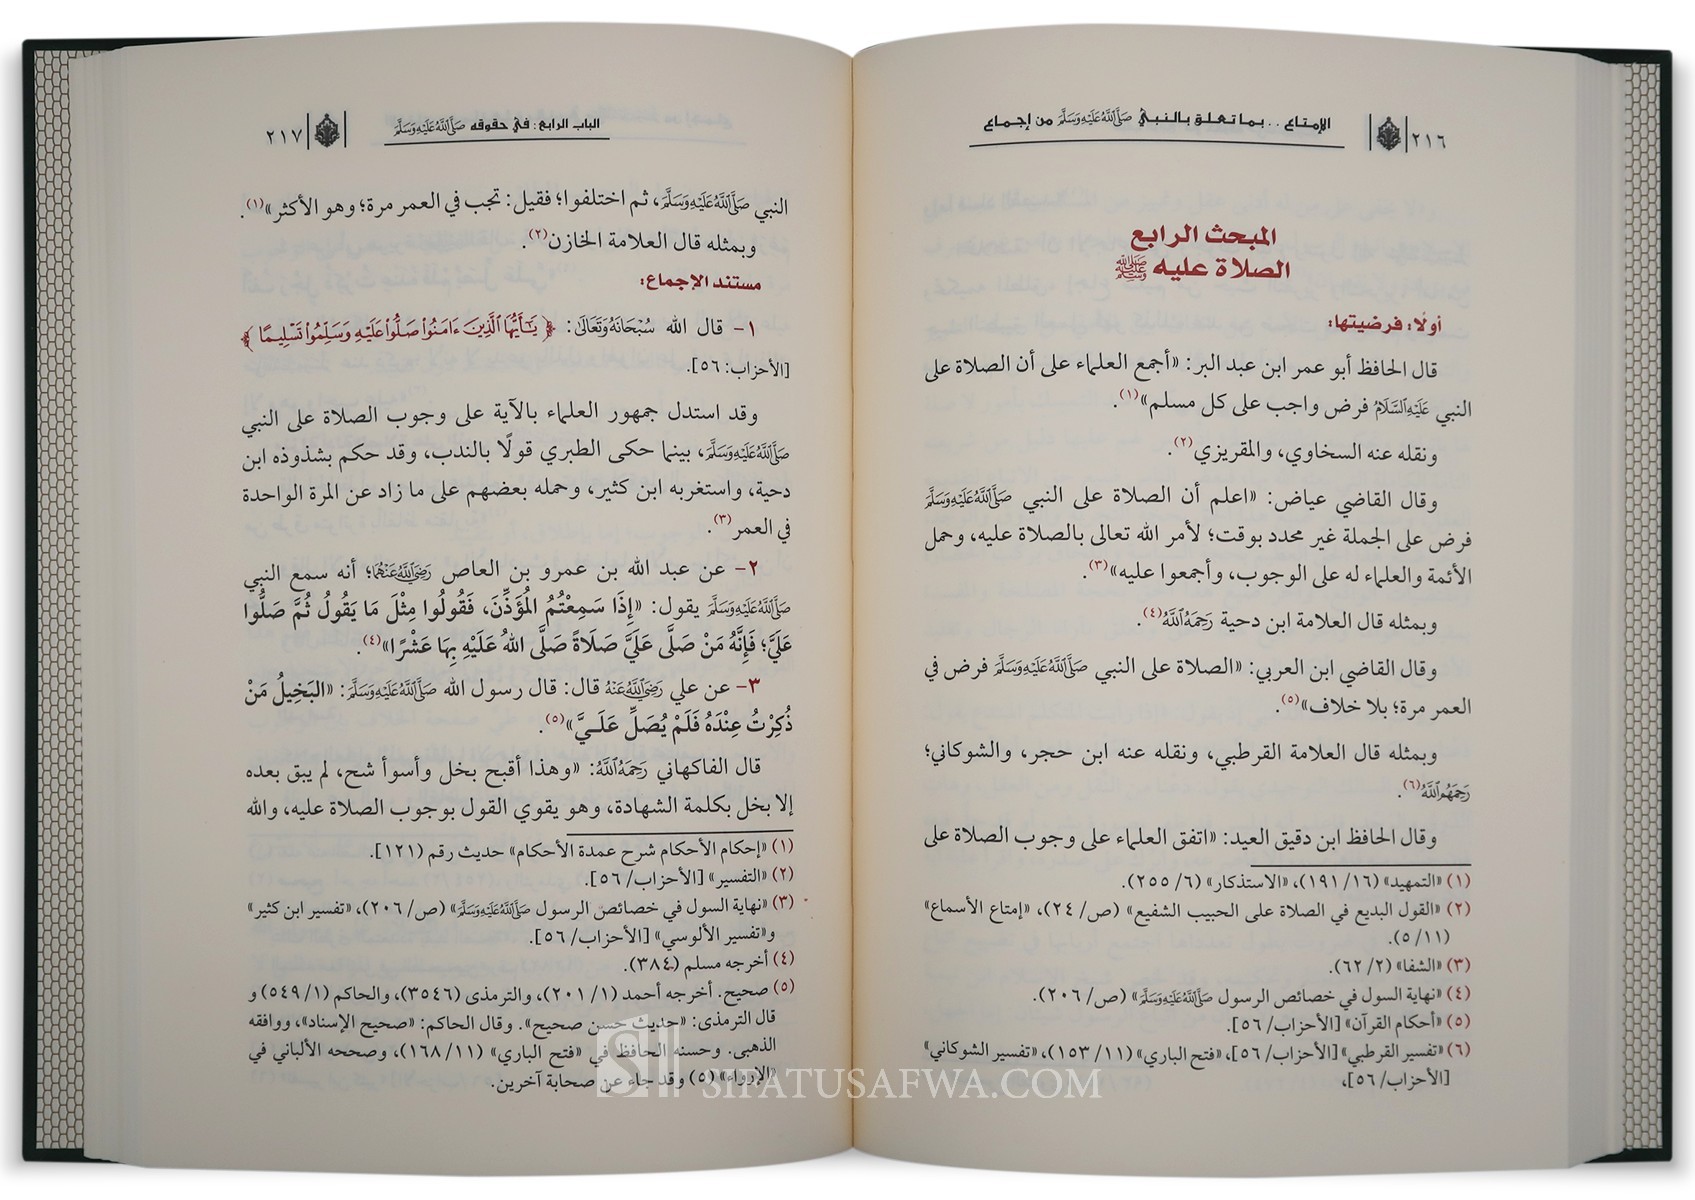 ٢١٦
الإمتاع .. بما تعلق بالنبي ﷺ من إجماع
المبحث الرابع
الصلاة عليه ﷺ
أولًا: فرضيتها:
قال الحافظ أبو عمر ابن عبد البر: «أجمع العلماء على أن الصلاة على
النبي عَلَيْهِ السَّلَامُ فرض واجب على كل مسلم»(١).
ونقله عنه السخاوي، والمقريزي(٢).
وقال القاضي عياض: «اعلم أن الصلاة على النبي ﷺ
فرض على الجملة غير محدد بوقت؛ لأمر الله تعالى بالصلاة عليه، وحمل
الأئمة والعلماء له على الوجوب، وأجمعوا عليه»(٣).
وبمثله قال العلامة ابن دحية رَحِمَهُ اللَّهُ(٤).
وقال القاضي ابن العربي: «الصلاة على النبي ﷺ فرض في
العمر مرة؛ بلا خلاف»(٥).
وبمثله قال العلامة القرطبي، ونقله عنه ابن حجر، والشوكاني؛
رَحِمَهُمُ اللَّهُ(٦).
وقال الحافظ ابن دقيق العيد: «اتفق العلماء على وجوب الصلاة على
(١) «التمهيد» (١٦/ ١٩١)، «الاستذكار» (٦/ ٢٥٥).
(٢) «القول البديع في الصلاة على الحبيب الشفيع» (ص/ ٢٤)، «إمتاع الأسماع»
(١١/ ٥).
(٣) «الشفا» (٢/ ٦٢).
(٤) «نهاية السول في خصائص الرسول ﷺ» (ص/ ٢٠٦).
(٥) «أحكام القرآن» [الأحزاب/ ٥٦].
(٦) «تفسير القرطبي» [الأحزاب/ ٥٦]، «فتح الباري» (١١/ ١٥٣)، «تفسير الشوكاني»
[الأحزاب/ ٥٦]،
الباب الرابع: في حقوقه ﷺ
٢١٧
النبي ﷺ، ثم اختلفوا؛ فقيل: تجب في العمر مرة؛ وهو الأكثر»(١).
وبمثله قال العلامة الخازن(٢).
مستند الإجماع:
١- قال الله سُبْحَانَهُ وَتَعَالَى: ﴿يَٰٓأَيُّهَا ٱلَّذِينَ ءَامَنُوا۟ صَلُّوا۟ عَلَيْهِ وَسَلِّمُوا۟ تَسْلِيمًا﴾
[الأحزاب: ٥٦].
وقد استدل جمهور العلماء بالآية على وجوب الصلاة على النبي
ﷺ، بينما حكى الطبري قولًا بالندب، وقد حكم بشذوذه ابن
دحية، واستغربه ابن كثير، وحمله بعضهم على ما زاد عن المرة الواحدة
في العمر(٣).
٢- عن عبد الله بن عمرو بن العاص رَضِيَ اللَّهُ عَنْهُمَا؛ أنه سمع النبي
ﷺ يقول: «إِذَا سَمِعْتُمُ المُؤَذِّنَ، فَقُولُوا مِثْلَ مَا يَقُولُ ثُمَّ صَلُّوا
عَلَيَّ؛ فَإِنَّهُ مَنْ صَلَّى عَلَيَّ صَلَاةً صَلَّى اللهُ عَلَيْهِ بِهَا عَشْرًا»(٤).
٣- عن علي رَضِيَ اللَّهُ عَنْهُ قال: قال رسول الله ﷺ: «البَخِيلُ مَنْ
ذُكِرْتُ عِنْدَهُ فَلَمْ يُصَلِّ عَلَيَّ»(٥).
قال الفاكهاني رَحِمَهُ اللَّهُ: «وهذا أقبح بخل وأسوأ شح، لم يبق بعده
إلا بخل بكلمة الشهادة، وهو يقوي القول بوجوب الصلاة عليه، والله
(١) «إحكام الأحكام شرح عمدة الأحكام» حديث رقم (١٢١].
(٢) «التفسير» [الأحزاب/ ٥٦].
(٣) «نهاية السول في خصائص الرسول ﷺ» (ص/ ٢٠٦)، «تفسير ابن كثير»
و«تفسير الألوسي» [الأحزاب/ ٥٦].
(٤) أخرجه مسلم (٣٨٤).
(٥) صحيح. أخرجه أحمد (١/ ٢٠١)، والترمذى (٣٥٤٦)، والحاكم (١/ ٥٤٩) و
قال الترمذى: «حديث حسن صحيح». وقال الحاكم: «صحيح الإسناد»، ووافقه
الذهبى. وحسنه الحافظ في «فتح الباري» (١١/ ١٦٨)، وصححه الألباني في
«الإرواء» (٥) وقد جاء عن صحابة آخرين.
SIFATUSAFWA.COM